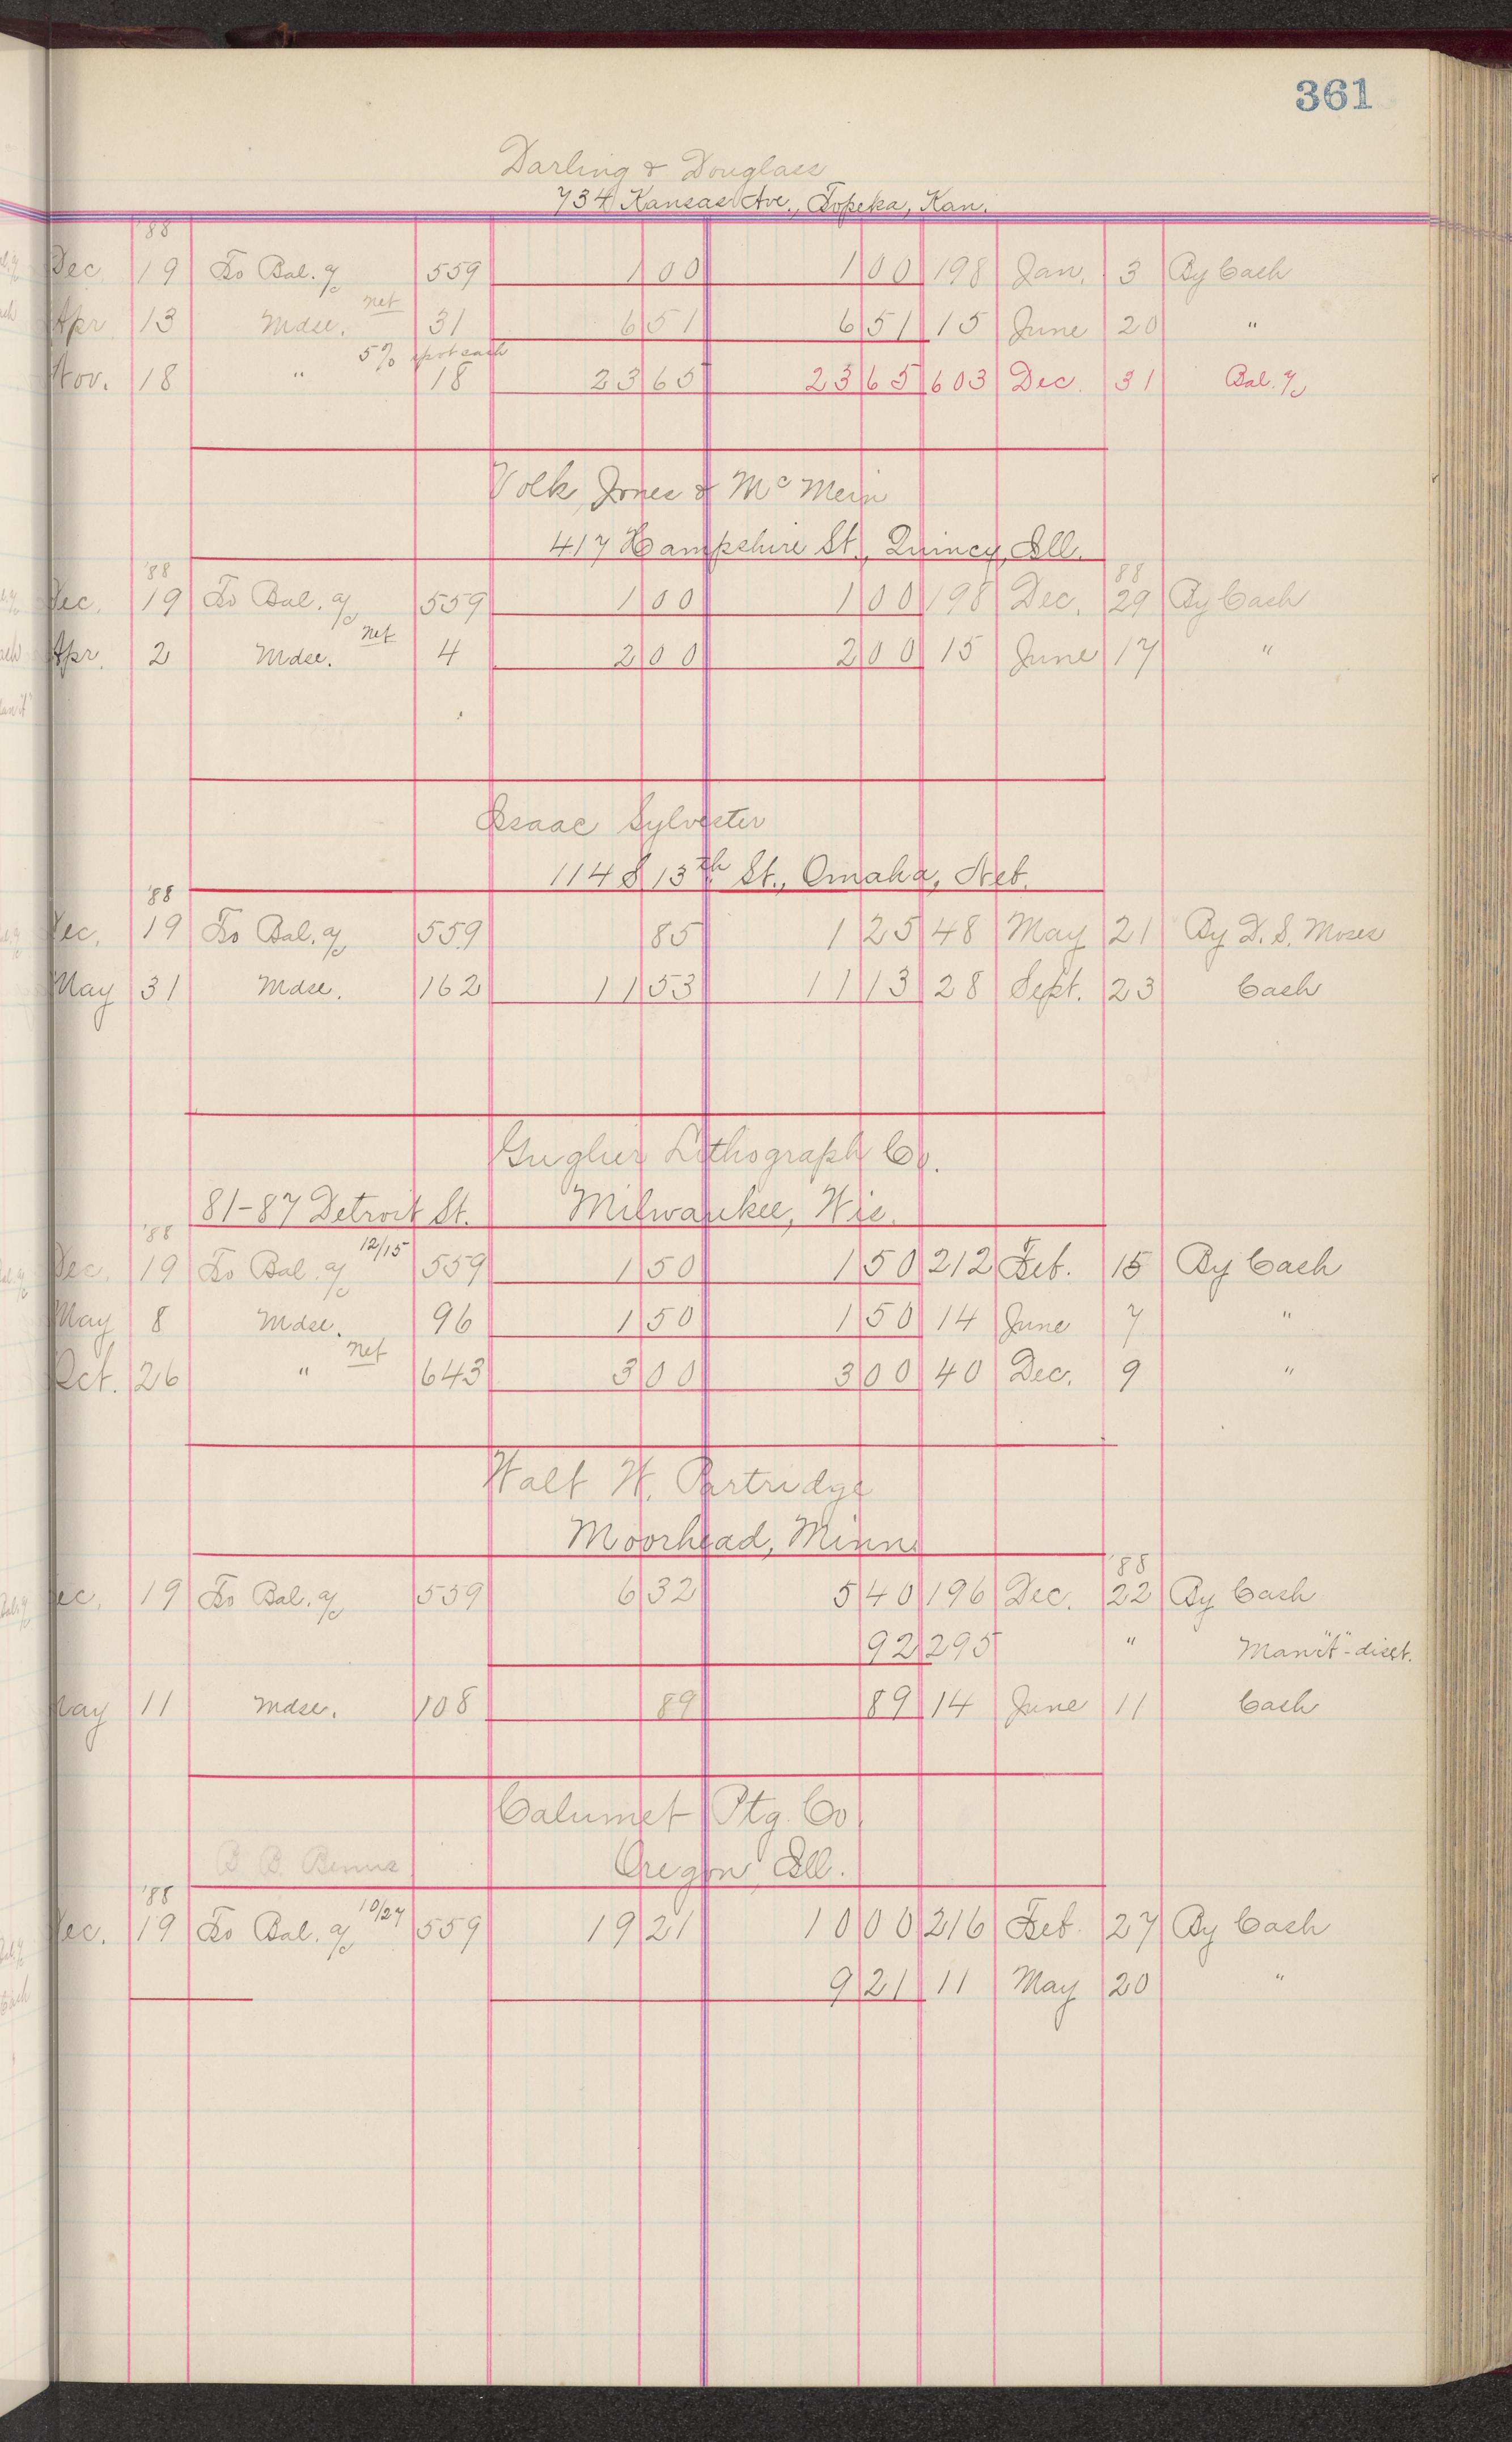 361
Darling & Douglass
734 Kansas Ave., Topeka, Kan.
'88
Dec. 19 To Bal. a/c 559 1 00 1 00 198 Jan. 3 By Cash
net
Apr 13 Mdse. 31 6 51 6 51 15 June 20 "
5% spot cash
Nov. 18 " 18 23 65 23 65 603 Dec. 31 Bal. a/c
Volk, Jones & McMein
417 Hampshire St., Quincy, Ill.
'88 88
Dec. 19 To Bal. a/c 559 1 00 1 00 198 Dec. 29 By Cash
net
Apr. 2 Mdse. 4 2 00 2 00 15 June 17 "
Isaac Sylvester
114 S 13th St., Omaha, Neb.
'88
Dec. 19 To Bal. a/c 559 85 1 25 48 May 21 By D. S. Moses
May 31 Mdse. 162 11 53 11 13 28 Sept. 23 Cash
Gugler Lithograph Co.
81-87 Detroit St. Milwaukee, Wis.
'88 12/15
Dec. 19 To Bal. a/c 559 1 50 1 50 212 Feb. 15 By Cash
May 8 Mdse. 96 1 50 1 50 14 June 7 "
net
Oct. 26 " 643 3 00 3 00 40 Dec. 9 "
Walt W. Partridge
Moorhead, Minn.
'88
Dec. 19 To Bal. a/c 559 6 32 5 40 196 Dec. 22 By Cash
92 295 " Man'f't - disct.
May 11 Mdse. 108 89 89 14 June 11 Cash
Calumet Ptg. Co.
B. B. Bemis Oregon, Ill.
'88 10/27
Dec. 19 To Bal. a/c 559 19 21 10 00 216 Feb. 27 By Cash
9 21 11 May 20 "